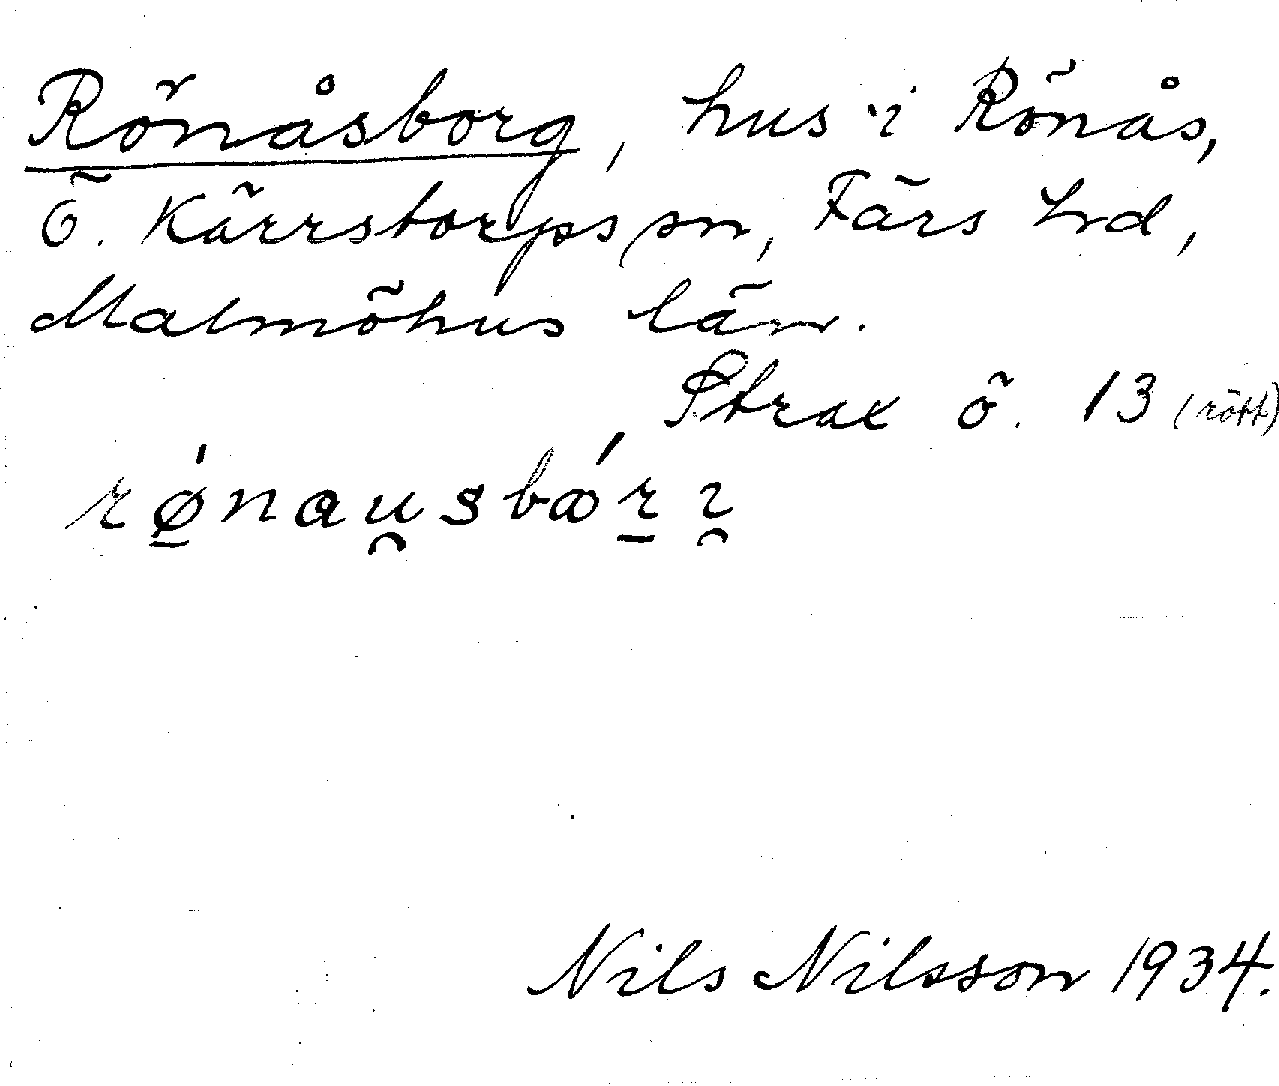 Rönåsborg, hus i Rönås,
Ö. Kärrstorps sn, Färs hd,
Malmöhus län.
Strax ö. 13 (rött)
Nils Nilsson 1934.